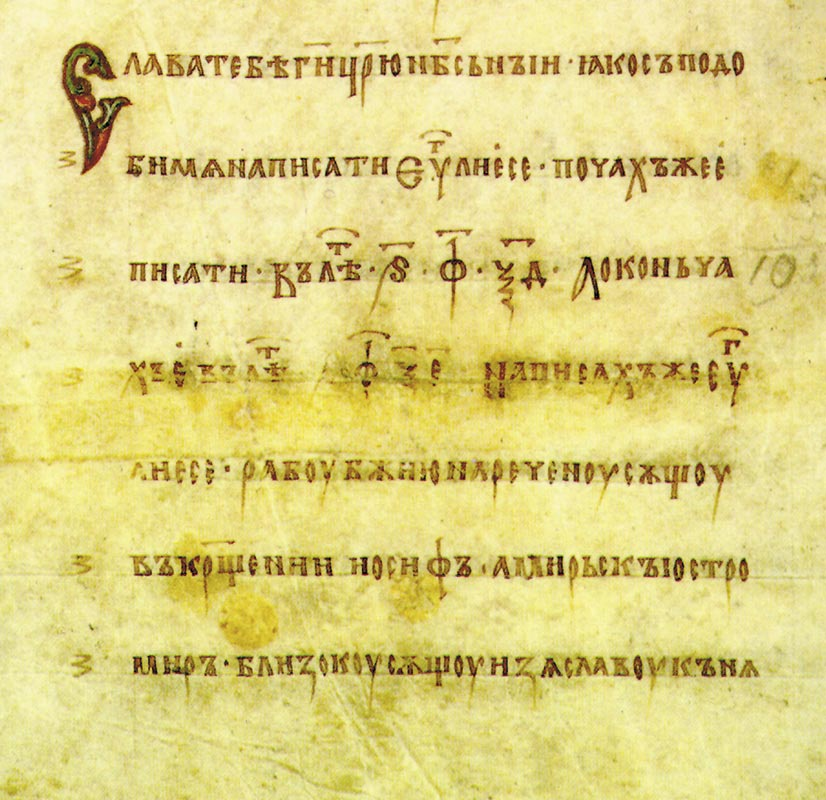 СЛАВАТЕБѢГ҃НЦР҃ЮНБ҃СЬНЪІН · ІАКОСЪПОДО
БИМѦНАПИСАТИЄѴⷢ҇ЛИЕСЕ · ПОЧАХЪЖЕЕ
ПИСАТИ · ВЪЛѢⷮ · Ѕ҃ · Ф҃ · Ѯ҃Д · АОКОНЬЧА
ХЪЕВЪЛѢⷮ Ф҃ Ѯ҃ Е҃ НАПИСАХЪЖЕЕѴⷢ҇
ЛИЕСЕ · РАБОУБЖ҃ИЮНАРЕЧЕНОУСѪЩОУ
ВЪКР҃ЩЕНИИ ИОСИФЪ · АМИРЬСКЪІОСТРО
МИРЪ · БЛИЗОКОУСѪЩОУИЗѦСЛАВОУКЪНѦ